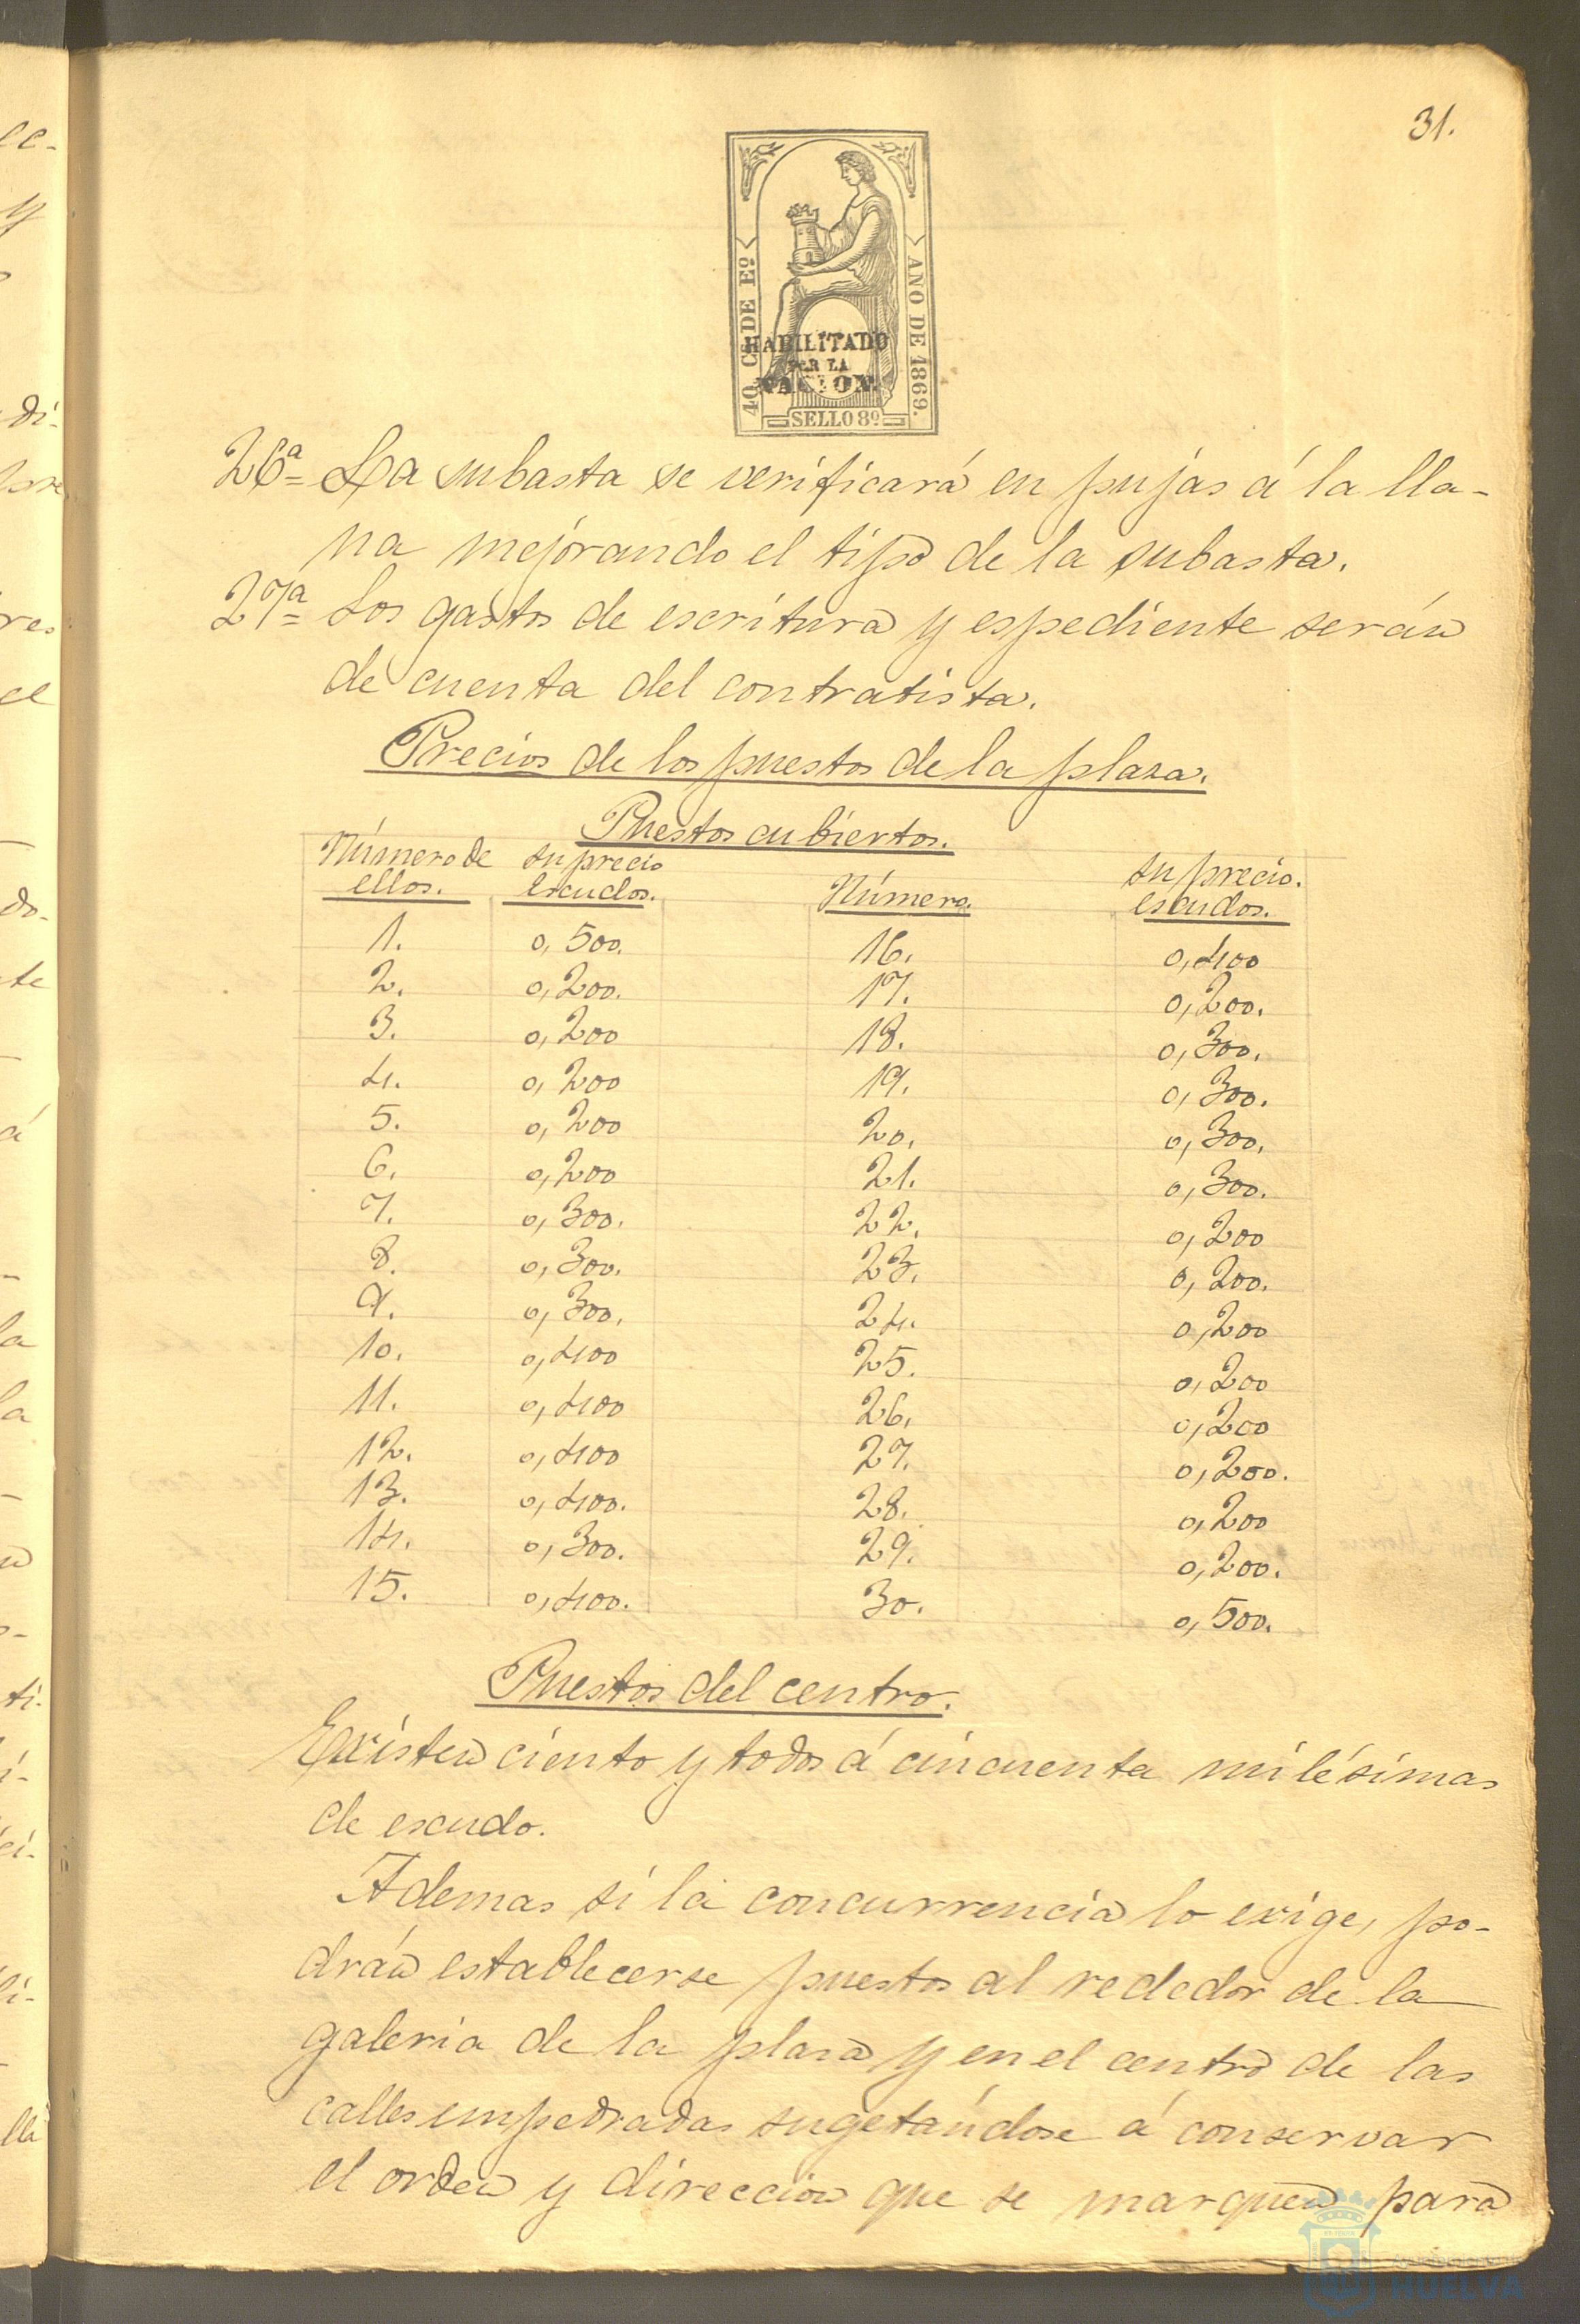 31.
40 Cs DE Eº
AÑO DE 1869.
HABILITADO
POR LA
NACION.
SELLO 8º
26ª= La subasta se verificará en pujas á la lla-
na mejorando el tipo de la subasta.
27ª= Los gastos de escritura y espediente serán
de cuenta del contratista.
Precios de los puestos de la plasa.
Puestos cubiertos.
Número de ellos. su precio Escudos. Número. su precio. escudos.
1. 0,500. 16. 0,400
2. 0,200. 17. 0,200.
3. 0,200 18. 0,300.
4. 0,200 19. 0,300.
5. 0,200 20. 0,300.
6. 0,200 21. 0,300.
7. 0,300. 22. 0,200
8. 0,300. 23. 0,200.
9. 0,300. 24. 0,200
10. 0,400 25. 0,200
11. 0,400 26. 0,200
12. 0,400 27. 0,200.
13. 0,400. 28. 0,200
14. 0,300. 29. 0,200.
15. 0,400. 30. 0,500.
Puestos del centro.
Existen ciento y todos á cincuenta milésimas
de escudo.
Ademas si la concurrencia lo exige, po-
drán establecerse puestos al rededor de la
galeria de la plasa y en el centro de las
calles empedradas sugetándose á conservar
el orden y direccion que se marquen para
HUELVA